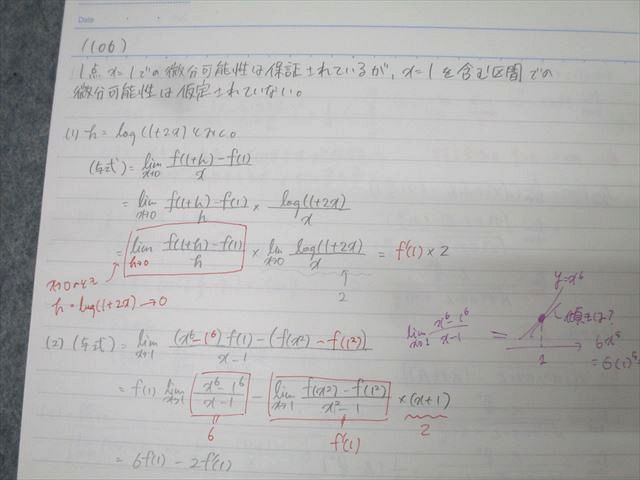 Date
(106)
1点 x=1 での微分可能性は保証されているが、x=1 を含む区間での
微分可能性は仮定されていない。
(1) h = log(1+2x) とおく。
(与式) = lim_{x→0} (f(1+h) - f(1))/x
= lim_{x→0} (f(1+h) - f(1))/h × log(1+2x)/x
= lim_{h→0} (f(1+h) - f(1))/h × lim_{x→0} log(1+2x)/x = f'(1) × 2
2
x→0 のとき
h = log(1+2x) → 0
(2) (与式) = lim_{x→1} ((x^6 - 1^6) f(1) - (f(x^2) - f(1^2)))/(x-1)
= f(1) lim_{x→1} (x^6 - 1^6)/(x-1) - lim_{x→1} (f(x^2) - f(1^2))/(x^2 - 1) × (x+1)
6
f'(1)
2
= 6f(1) - 2f'(1)
lim_{x→1} (x^6 - 1^6)/(x-1) =
y=x^6
傾きは?
1
6x^5
= 6(1)^5